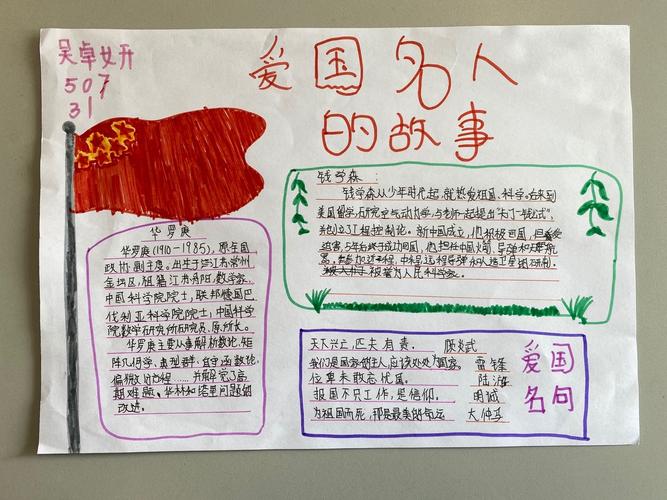 吴卓妍
507
31
爱国名人
的故事
钱学森：
钱学森从少年时代起,就热爱祖国、科学。后来到
美国留学,研究空气动力学,与老师一起提出"卡门-钱公式"。
他创立了工程控制论。新中国成立,他积极回国,但
迫害,5年后终于成功回国,他担任中国火箭、导弹和
中近程导弹和人造卫星的研制。
被誉为人民科学家。
华罗庚
华罗庚(1910-1985),原全国
政协副主席。出生于江苏常州
金坛区,祖籍江苏丹阳,数学家,
中国科学院院士,联邦德国巴
伐利亚科学院院士,中国科学
院数学研究所研究员、原所长。
华罗庚主要从事解析数论、矩
阵几何学、典型群、自守函数论、
偏微分方程……并解决了高
斯难题、华林和塔里问题的
改进。
天下兴亡,匹夫有责。 顾炎武
我们是国家的主人,应该处处为国家。 雷锋
位卑未敢忘忧国。 陆游
报国不只工作,是信仰。 明诚
为祖国而死,那是最美的命运 大仲马
爱国
名句